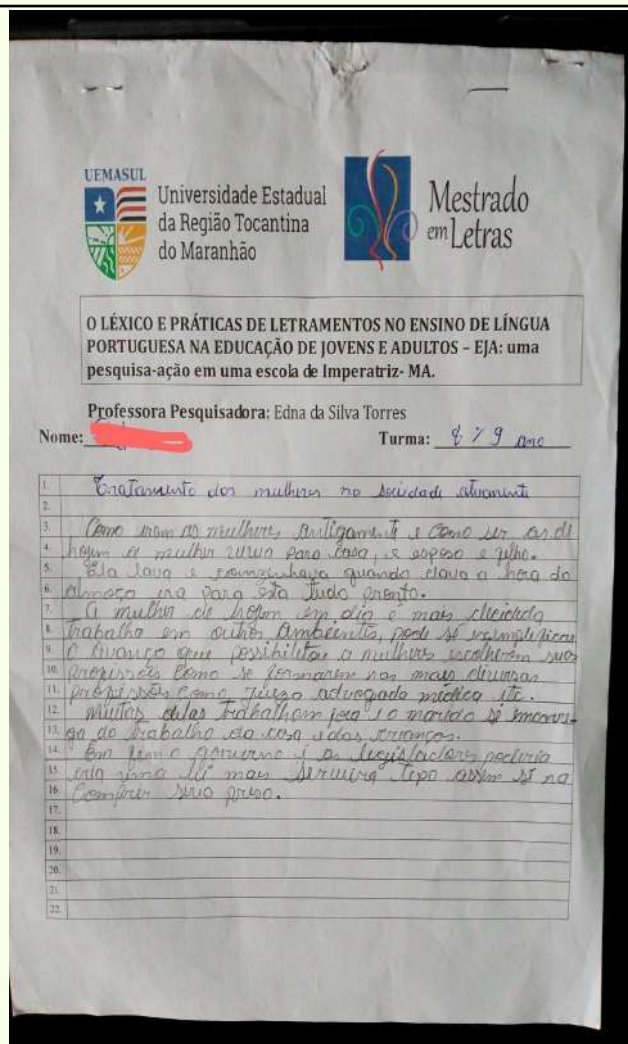 UEMASUL
Universidade Estadual
da Região Tocantina
do Maranhão
Mestrado
em Letras
O LÉXICO E PRÁTICAS DE LETRAMENTOS NO ENSINO DE LÍNGUA
PORTUGUESA NA EDUCAÇÃO DE JOVENS E ADULTOS – EJA: uma
pesquisa-ação em uma escola de Imperatriz- MA.
Professora Pesquisadora: Edna da Silva Torres
Nome: Turma: 8 % 9 ano
1. Tratamento dos mulheres no sociedade
2.
3. Como eram as mulheres Antigamente e Como ser as di
4. hojem a mulher vivia para casa, e esposo e filho.
5. Ela lava e cozinhava quando dava a hora do
6. almoço era para esta tudo pronto.
7. A mulher de hojem em dia e mais decidida
8. trabalha em outros Ambientes, pode se
9. O Avanço que possibilitou a mulheres escolherem suas
10. profissões Como se formarem nas mais diversas
11. profissões Como juíza advogada médica etc.
12. Muitas delas trabalham fora e o marido se
13. ga do trabalho da casa e das crianças.
14. Em fim o governo e os legisladores poderia
15. cria uma lei mais tipo assim se na
16. Comprir seria preso.
17.
18.
19.
20.
21.
22.